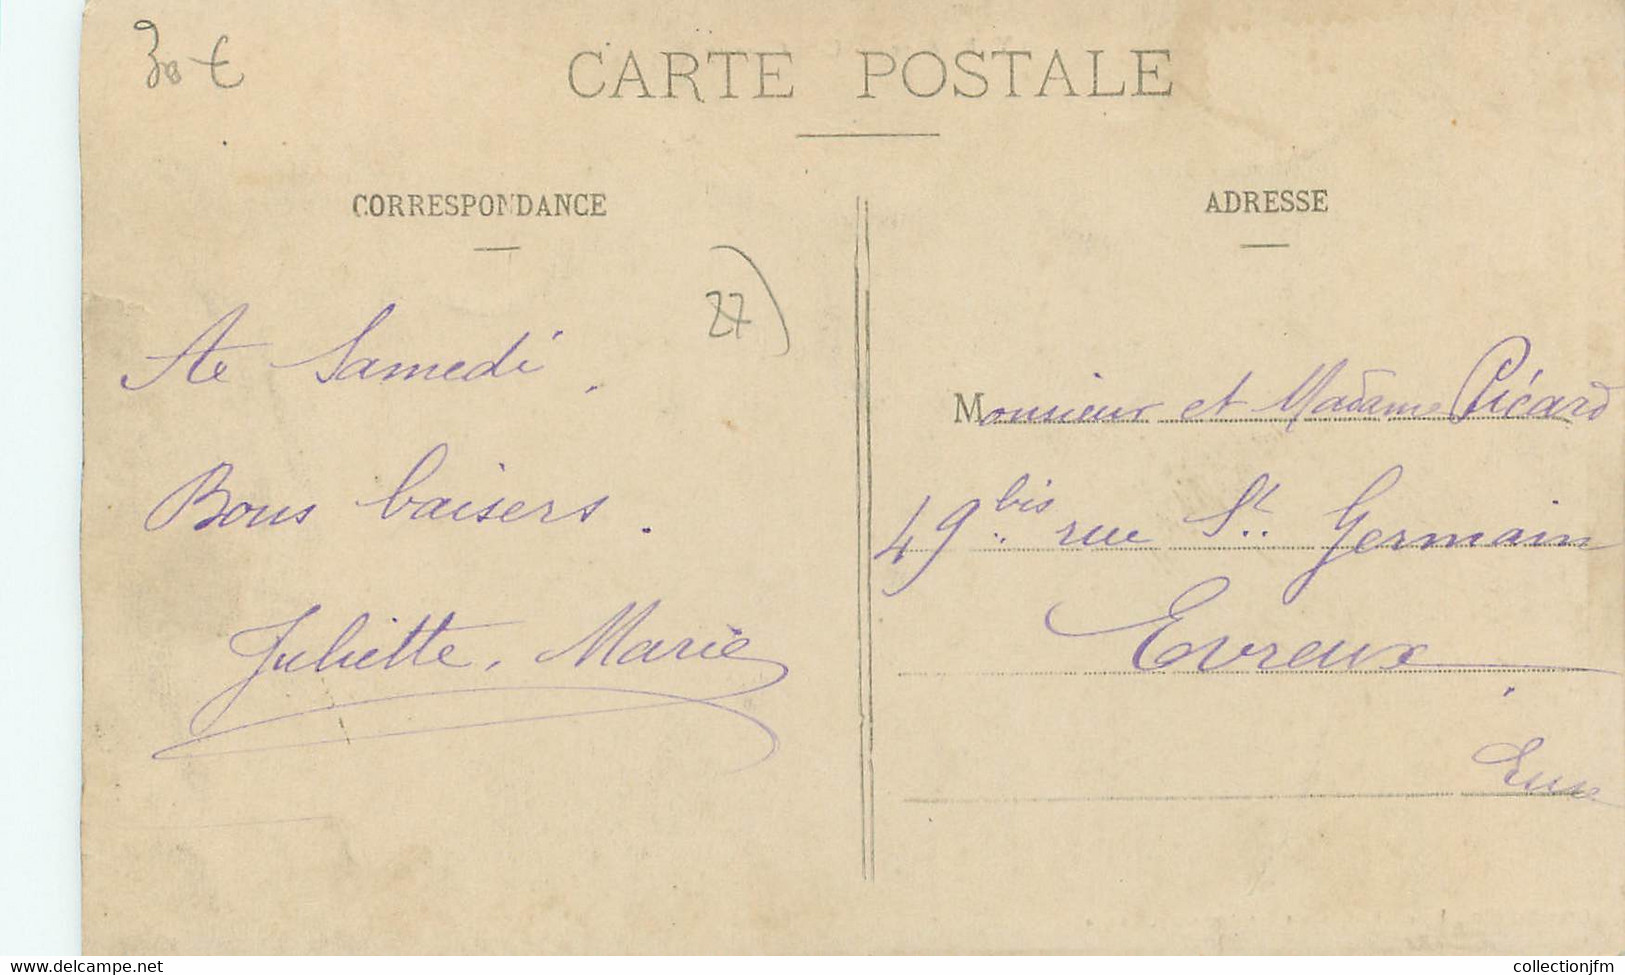 30 €
CARTE POSTALE
CORRESPONDANCE
27)
A Samedi.
Bons baisers.
Juliette, Marie
ADRESSE
Monsieur et Madame Picard
49 bis rue St. Germain
Evreux
Eure
www.delcampe.net
collectionjfm